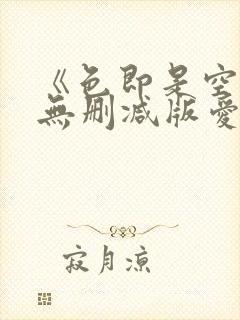 《色即是空
無刪减版愛
寂月凉